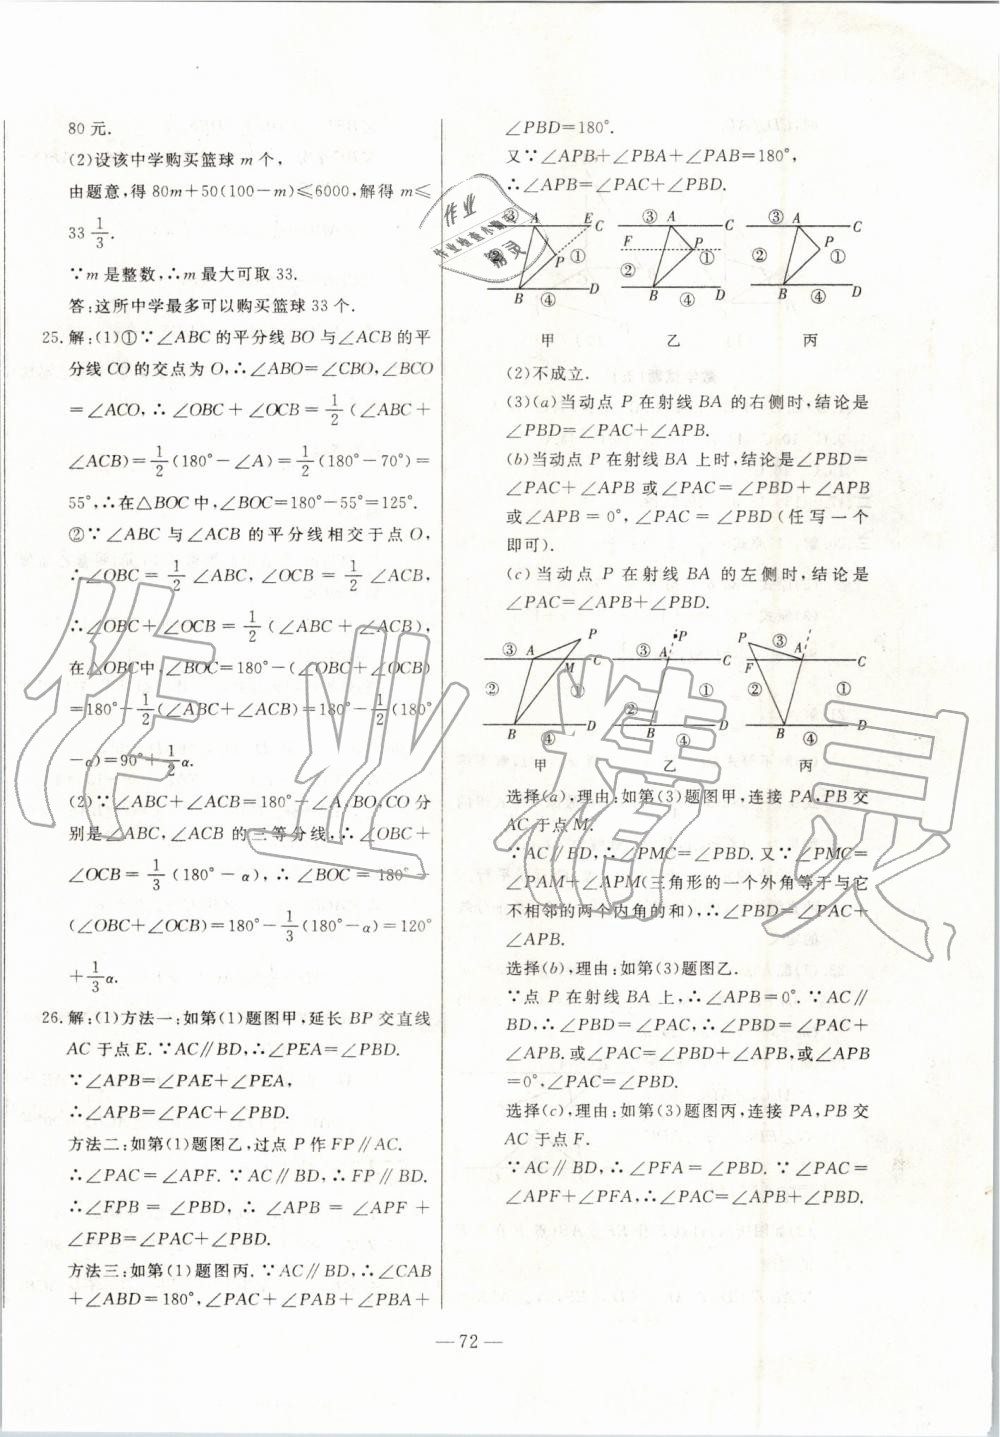 80元.
(2)设该中学购买篮球 m 个,
由题意,得 80m+50(100-m)≤6000,解得 m≤
33 1/3.
∵m 是整数,∴m 最大可取 33.
答:这所中学最多可以购买篮球 33 个.
25.解:(1)①∵∠ABC 的平分线 BO 与∠ACB 的平
分线 CO 的交点为 O,∴∠ABO=∠CBO,∠BCO
=∠ACO,∴∠OBC+∠OCB=1/2(∠ABC+
∠ACB)=1/2(180°-∠A)=1/2(180°-70°)=
55°,∴在△BOC 中,∠BOC=180°-55°=125°.
②∵∠ABC 与∠ACB 的平分线相交于点 O,
∴∠OBC=1/2∠ABC,∠OCB=1/2∠ACB,
∴∠OBC+∠OCB=1/2(∠ABC+∠ACB),
在△OBC中,∠BOC=180°-(∠OBC+∠OCB)
=180°-1/2(∠ABC+∠ACB)=180°-1/2(180°
-α)=90°+1/2α.
(2)∵∠ABC+∠ACB=180°-∠A,BO,CO 分
别是∠ABC,∠ACB 的三等分线,∴∠OBC+
∠OCB=1/3(180°-α),∴∠BOC=180°-
(∠OBC+∠OCB)=180°-1/3(180°-α)=120°
+1/3α.
26.解:(1)方法一:如第(1)题图甲,延长 BP 交直线
AC 于点 E.∵AC∥BD,∴∠PEA=∠PBD.
∵∠APB=∠PAE+∠PEA,
∴∠APB=∠PAC+∠PBD.
方法二:如第(1)题图乙,过点 P 作 FP∥AC.
∴∠PAC=∠APF.∵AC∥BD,∴FP∥BD.
∴∠FPB=∠PBD,∴∠APB=∠APF+
∠FPB=∠PAC+∠PBD.
方法三:如第(1)题图丙.∵AC∥BD,∴∠CAB
+∠ABD=180°,∠PAC+∠PAB+∠PBA+
∠PBD=180°.
又∵∠APB+∠PBA+∠PAB=180°,
∴∠APB=∠PAC+∠PBD.
③ A E C P ① B ④ D
③ A C F P ① ② B ④ D
③ A C P ① ② B ④ D
甲 乙 丙
(2)不成立.
(3)(a)当动点 P 在射线 BA 的右侧时,结论是
∠PBD=∠PAC+∠APB.
(b)当动点 P 在射线 BA 上时,结论是∠PBD=
∠PAC+∠APB 或∠PAC=∠PBD+∠APB
或∠APB=0°,∠PAC=∠PBD(任写一个
即可).
(c)当动点 P 在射线 BA 的左侧时,结论是
∠PAC=∠APB+∠PBD.
③ A P M C ② ① B ④ D
③ P A C ② ① B ④ D
P ③ A F C ② ① B ④ D
甲 乙 丙
选择(a),理由:如第(3)题图甲,连接 PA,PB 交
AC 于点 M.
∵AC∥BD,∴∠PMC=∠PBD.又∵∠PMC=
∠PAM+∠APM(三角形的一个外角等于与它
不相邻的两个内角的和),∴∠PBD=∠PAC+
∠APB.
选择(b),理由:如第(3)题图乙.
∵点 P 在射线 BA 上,∴∠APB=0°.∵AC∥
BD,∴∠PBD=∠PAC,∴∠PBD=∠PAC+
∠APB.或∠PAC=∠PBD+∠APB,或∠APB
=0°,∠PAC=∠PBD.
选择(c),理由:如第(3)题图丙,连接 PA,PB 交
AC 于点 F.
∵AC∥BD,∴∠PFA=∠PBD.∵∠PAC=
∠APF+∠PFA,∴∠PAC=∠APB+∠PBD.
— 72 —
作业精灵
作业
作业检查小助手
精灵